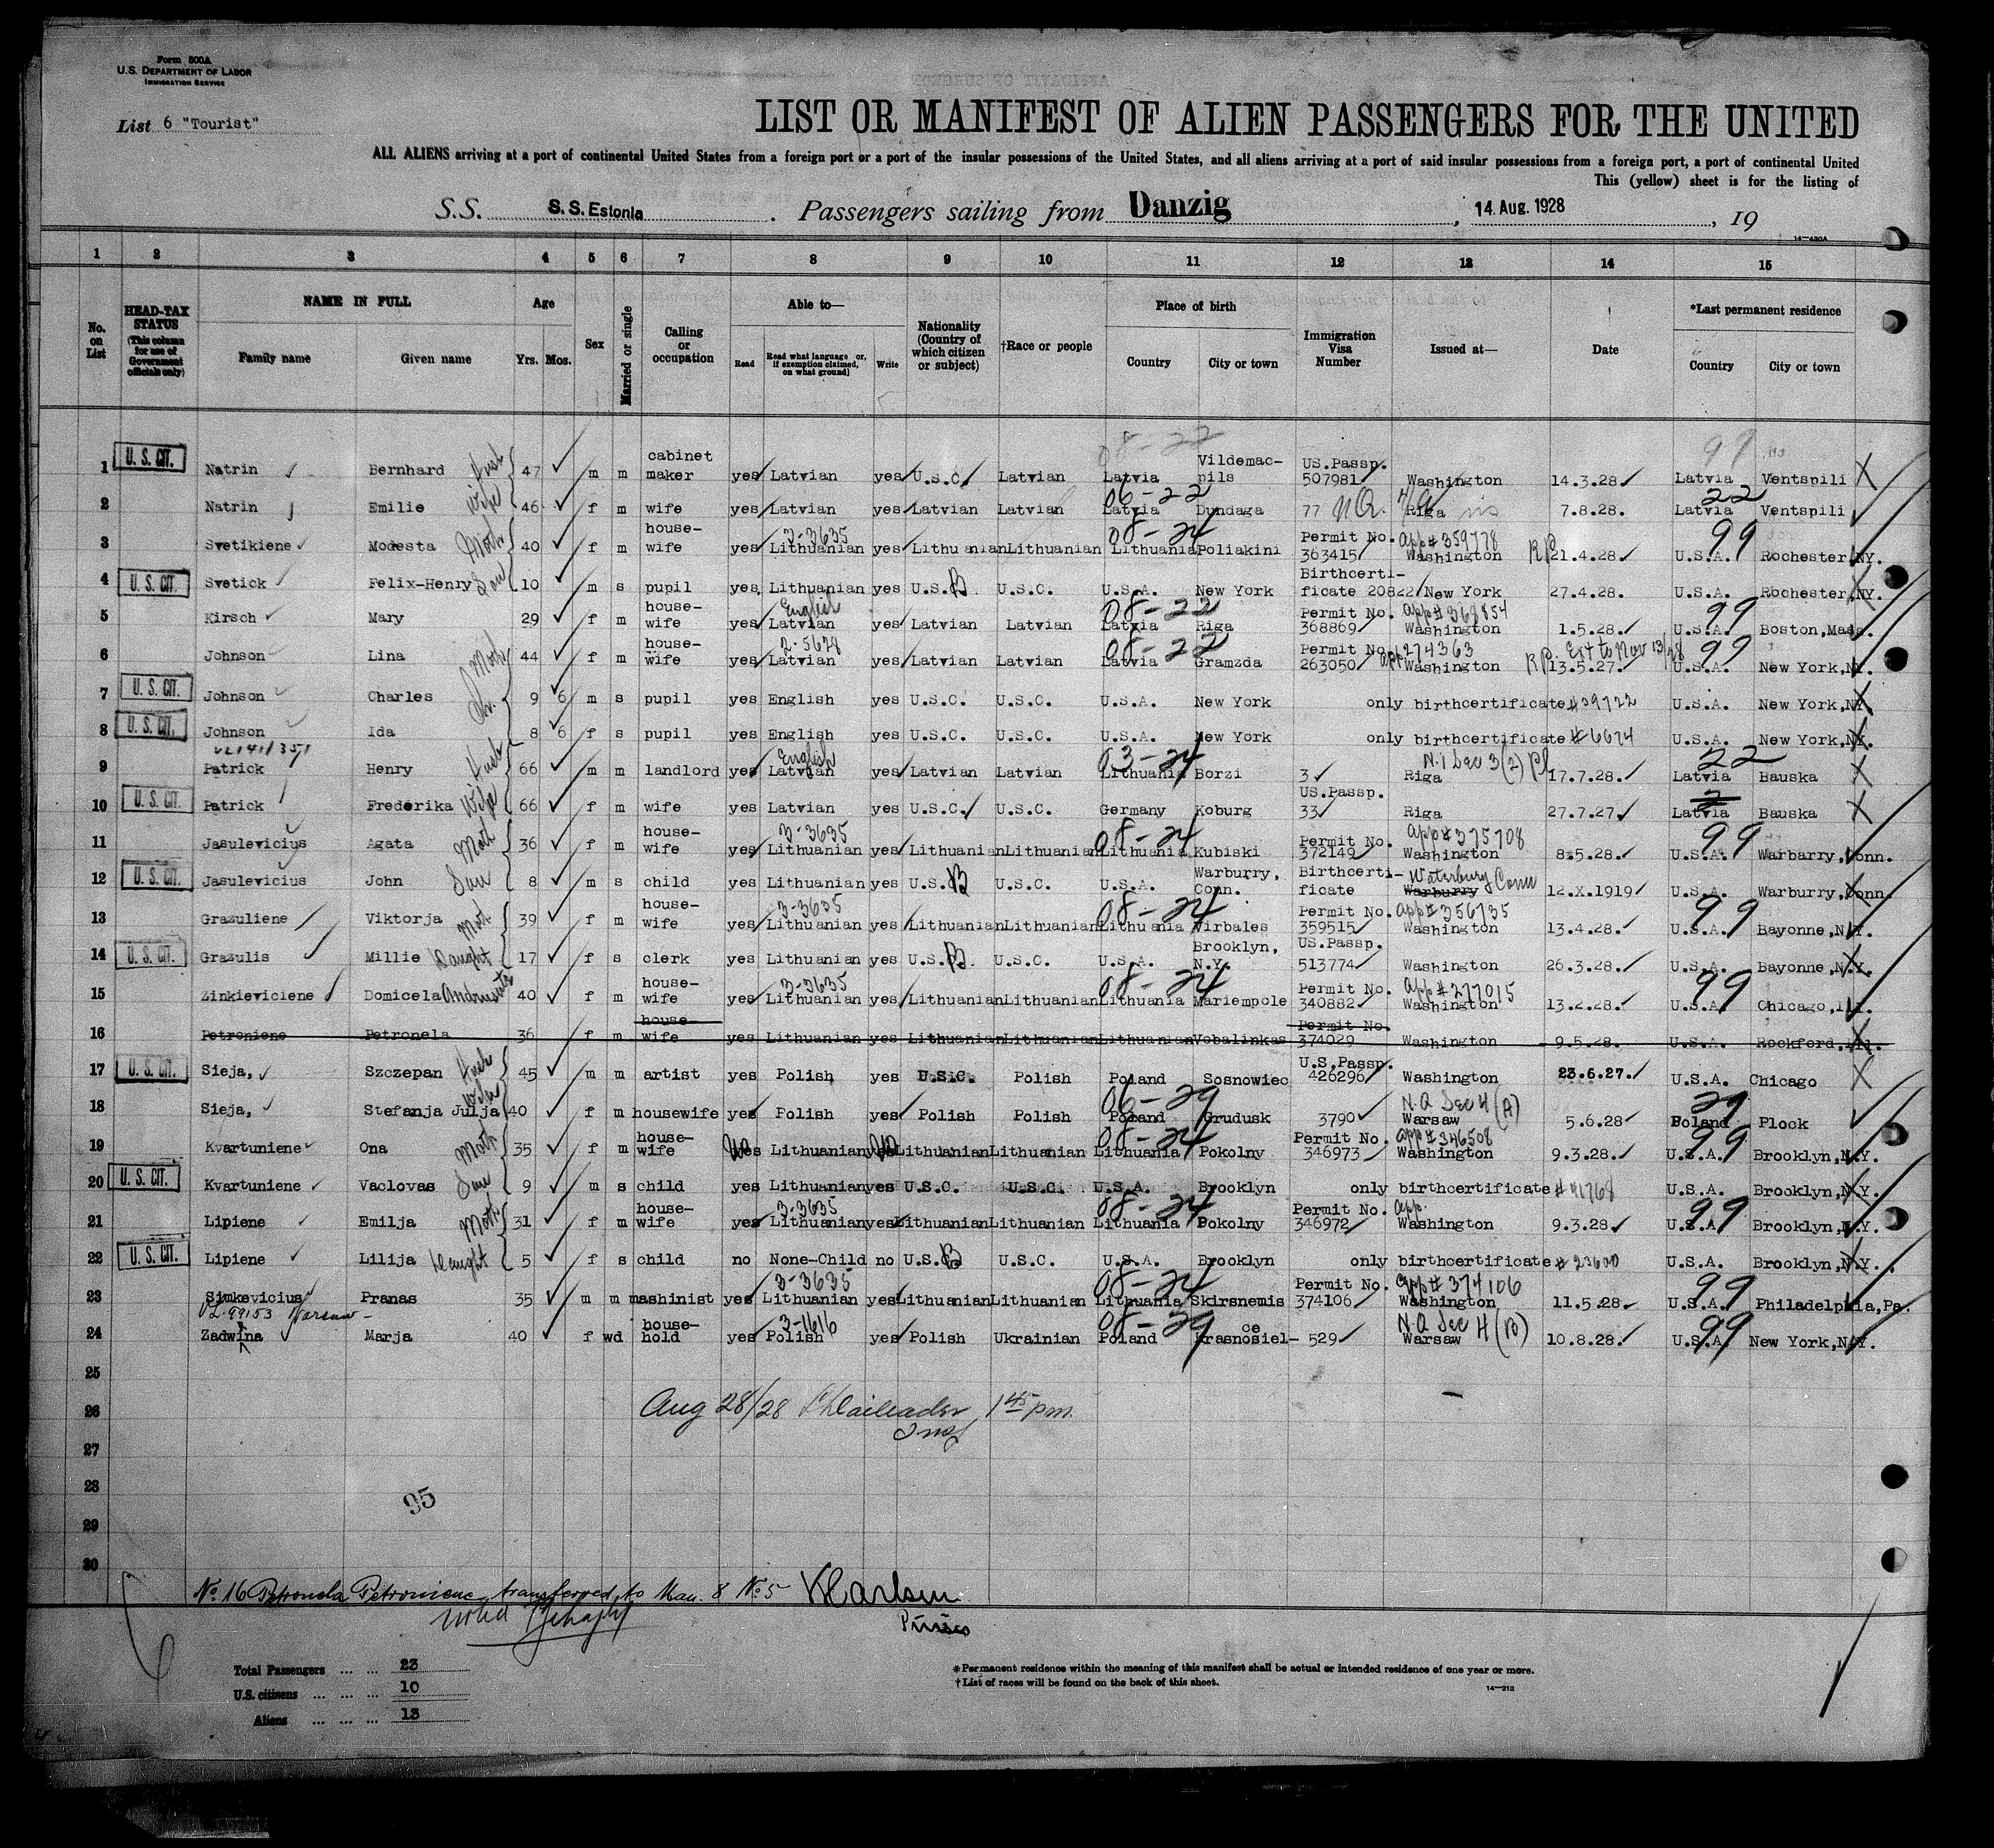 Form 500A
U.S. DEPARTMENT OF LABOR
IMMIGRATION SERVICE
List 6 "Tourist"
LIST OR MANIFEST OF ALIEN PASSENGERS FOR THE UNITED
ALL ALIENS arriving at a port of continental United States from a foreign port or a port of the insular possessions of the United States, and all aliens arriving at a port of said insular possessions from a foreign port, a port of continental United
This (yellow) sheet is for the listing of
S.S. S.S. Estonia. Passengers sailing from Danzig, 14. Aug. 1928, 19
14—480A
1 2 3 4 5 6 7 8 9 10 11 12 13 14 15
No. on List
HEAD-TAX STATUS (This column for use of Government officials only)
NAME IN FULL Family name Given name
Age Yrs. Mos.
Sex
Married or single
Calling or occupation
Able to— Read Read what language or, if exemption claimed, on what ground] Write
Nationality (Country of which citizen or subject)
†Race or people
Place of birth Country City or town
Immigration Visa Number
Issued at—
Date
*Last permanent residence Country City or town
1 U.S. CIT. Natrin Bernhard Husb 47 m m cabinet maker yes Latvian yes U.S.C. Latvian 08-22 Latvia Vildemac-nils US.Passp. 507981 Washington 14.3.28. 99 Latvia Ventspili
2 Natrin Emilie Wife 46 f m wife yes Latvian yes Latvian Latvian 06-22 Latvia Dundaga 77 Riga 7.8.28. 22 Latvia Ventspili
3 Svetikiene Modesta Moth 40 f m house-wife yes 3-3635 Lithuanian yes Lithuanian Lithuanian 08-24 Lithuania Poliakini Permit No. 363415 app# 359778 Washington RP 21.4.28. 99 U.S.A. Rochester, NY.
4 U.S. CIT. Svetick Felix-Henry Son 10 m s pupil yes Lithuanian yes U.S.B. U.S.C. U.S.A. New York Birthcerti-ficate 20822 New York 27.4.28. U.S.A. Rochester, NY.
5 Kirsch Mary 29 f m house-wife yes English Latvian yes Latvian Latvian 08-22 Latvia Riga Permit No. 368869 app# 368854 Washington 1.5.28. 99 U.S.A. Boston, Mass.
6 Johnson Lina Moth 44 f m house-wife yes 2-5628 Latvian yes Latvian Latvian 08-22 Latvia Gramzda Permit No. 263050 app 274363 Washington RP 13.5.27. Ext to Nov 13/28 99 U.S.A. New York, NY.
7 U.S. CIT. Johnson Charles 9 6 m s pupil yes English yes U.S.C. U.S.C. U.S.A. New York only birthcertificate #39722 U.S.A. New York, NY.
8 U.S. CIT. Johnson Ida 8 6 f s pupil yes English yes U.S.C. U.S.C. U.S.A. New York only birthcertificate #6674 U.S.A. New York, NY.
9 Patrick Henry Husb 66 m m landlord yes English Latvian yes Latvian Latvian 03-24 Lithuania Borzi 3 Riga 17.7.28. 22 Latvia Bauska
10 U.S. CIT. Patrick Frederika Wife 66 f m wife yes Latvian yes U.S.C. U.S.C. Germany Koburg US.Passp. 33 Riga 27.7.27. Latvia Bauska
11 Jasulevicius Agata Moth 36 f m house-wife yes 3-3635 Lithuanian yes Lithuanian Lithuanian 08-24 Lithuania Kubiski Permit No. 372149 app# 375708 Washington 8.5.28. 99 U.S.A. Warbarry, Conn.
12 U.S. CIT. Jasulevicius John Son 8 m s child yes Lithuanian yes U.S.B U.S.C. U.S.A. Warburry, Conn. Birthcerti-ficate Waterbury Conn Warburry 12.X.1919 U.S.A. Warburry, Conn.
13 Grazuliene Viktorja Mot. 39 f m house-wife yes 3-3635 Lithuanian yes Lithuanian Lithuanian 08-24 Lithuania Virbales Permit No. 359515 app# 356735 Washington 13.4.28. 99 U.S.A. Bayonne, N.Y.
14 U.S. CIT. Grazulis Millie Daught 17 f s clerk yes Lithuanian yes U.S.B. U.S.C. U.S.A. Brooklyn, N.Y. US.Passp. 513774 Washington 26.3.28. U.S.A. Bayonne, N.Y.
15 Zinkieviciene Domicela 40 f m house-wife yes 3-3635 Lithuanian yes Lithuanian Lithuanian 08-24 Lithuania Mariempole Permit No. 340882 app# 277015 Washington 13.2.28. 99 U.S.A. Chicago, Ill.
16 Petroniene Petronela 36 f m house-wife yes Lithuanian yes Lithuanian Lithuanian Lithuania Vobalinkas Permit No. 374029 Washington 9.5.28. U.S.A. Rockford, Ill.
17 U.S. CIT. Sieja, Szczepan Husb 45 m m artist yes Polish yes U.S.C. Polish Poland Sosnowiec U.S.Passp. 426296 Washington 23.6.27. U.S.A. Chicago
18 Sieja, Stefanja Julja Wife 40 f m housewife yes Polish yes Polish Polish 06-29 Poland Grudusk 3790 N.Q Sec 4(A) Warsaw 5.6.28 29 Poland Plock
19 Kvartuniene Ona Moth 35 f m house-wife yes Lithuanian yes Lithuanian Lithuanian 08-24 Lithuania Pokolny Permit No. 346973 app# 346508 Washington 9.3.28. 99 U.S.A. Brooklyn, N.Y.
20 U.S. CIT. Kvartuniene Vaclovas Son 9 m s child yes Lithuanian yes U.S.C. U.S.C. U.S.A. Brooklyn only birthcertificate #41768 U.S.A. Brooklyn, N.Y.
21 Lipiene Emilja Moth 31 f m house-wife yes 3-3635 Lithuanian yes Lithuanian Lithuanian 08-24 Lithuania Pokolny Permit No. 346972 app. Washington 9.3.28. 99 U.S.A. Brooklyn, N.Y.
22 U.S. CIT. Lipiene Lilija Daught 5 f s child no None-Child no U.S.B U.S.C. U.S.A. Brooklyn only birthcertificate #23600 U.S.A. Brooklyn, N.Y.
23 Simkevicius Pranas 35 m m mashinist yes 3-3635 Lithuanian yes Lithuanian Lithuanian 08-24 Lithuania Skirsnemis Permit No. 374106 app# 374106 Washington 11.5.28. 99 U.S.A. Philadelphia, Pa.
VL-99153 Warsaw-
24 Zadwina Marja 40 f wd house-hold yes 3-1616 Polish yes Polish Ukrainian 08-29 Poland Krasnosiel-ce 529 N.Q Sec 4(B) Warsaw 10.8.28. 99 U.S.A. New York, N.Y.
25
26 Aug 28/28 1 45 pm.
Insp
27
28
95
29
30
No. 16 Petronela Petroniene transferred to Man. 8 No. 5
Total Passengers ... ... 23
U.S. citizens ... ... ... 10
Aliens ... ... ... 13
*Permanent residence within the meaning of this manifest shall be actual or intended residence of one year or more.
†List of races will be found on the back of this sheet.
14—213